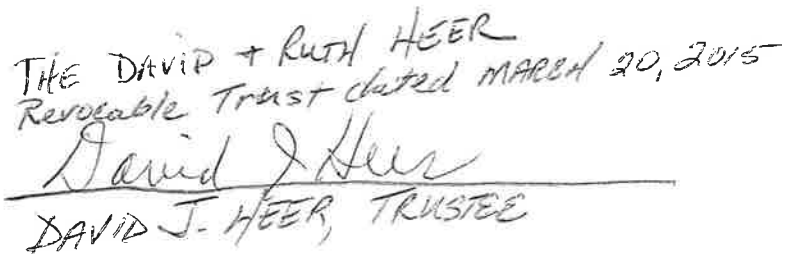 THE DAVID + RUTH HEER
Revocable Trust dated MARCH 20, 2015
David J Heer
DAVID J. HEER, TRUSTEE